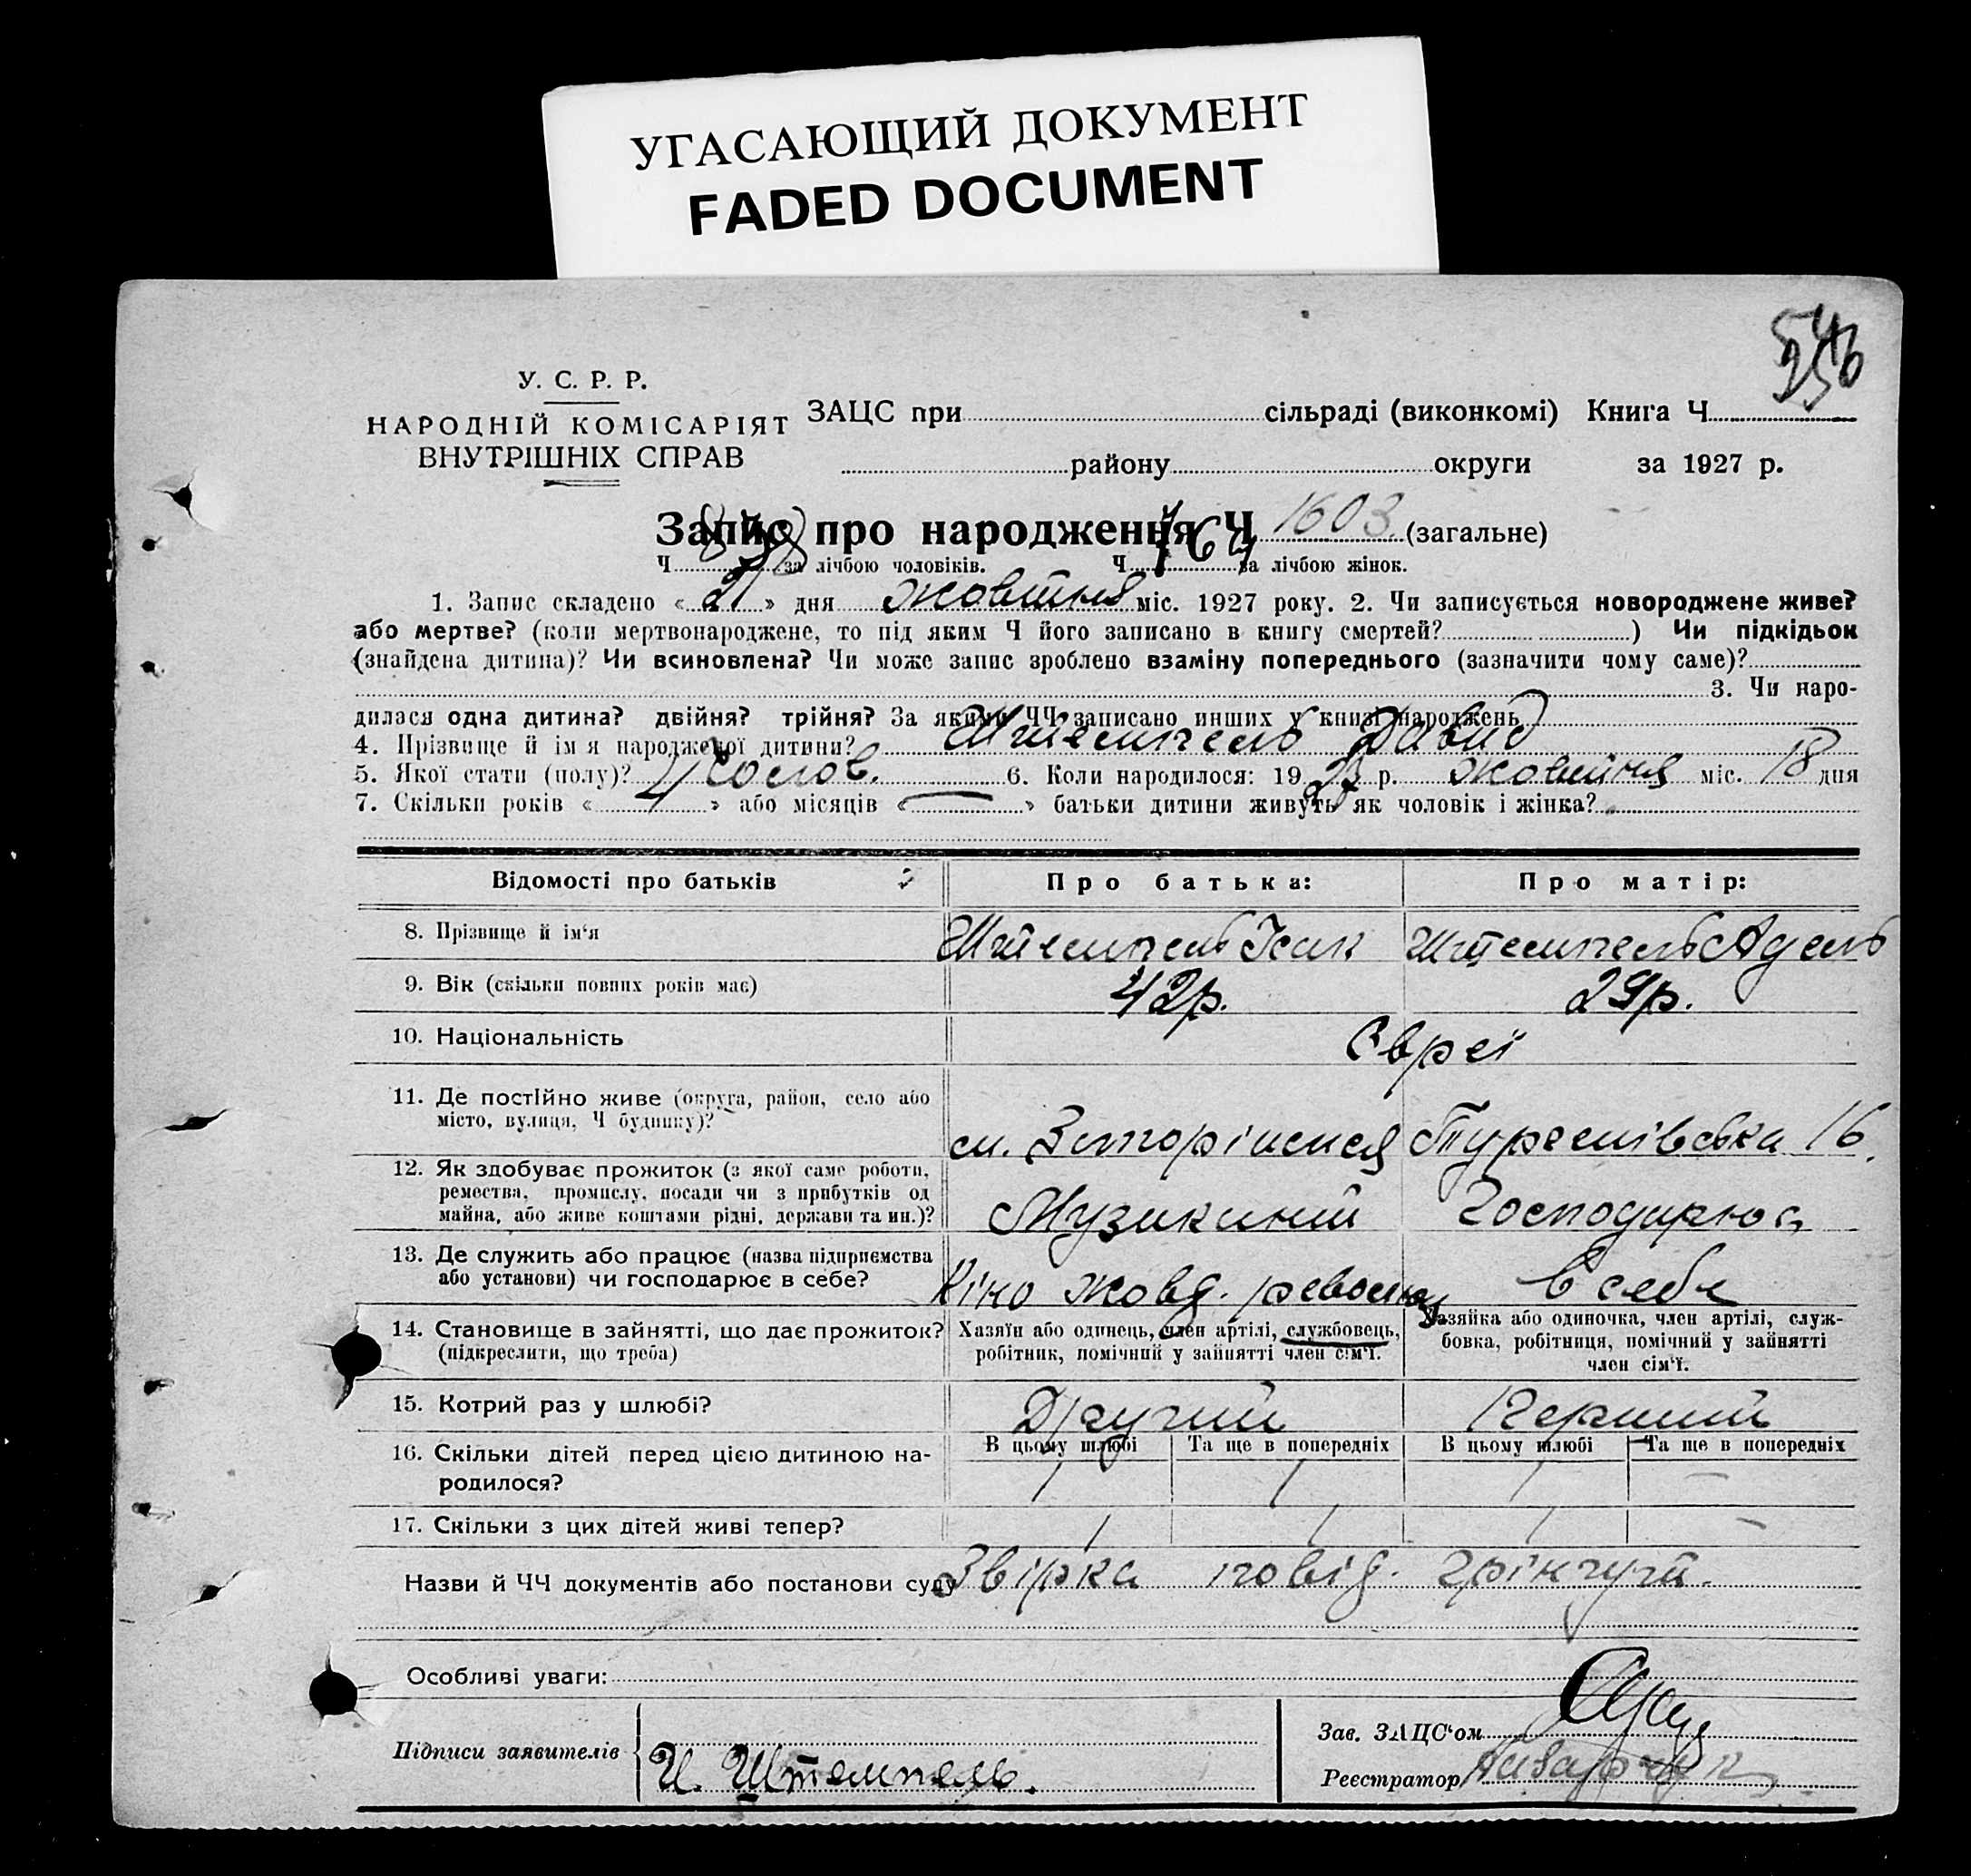 УГАСАЮЩИЙ ДОКУМЕНТ
FADED DOCUMENT
У. С. Р. Р.
НАРОДНІЙ КОМІСАРІЯТ
ВНУТРІШНІХ СПРАВ
ЗАЦС при сільраді (виконкомі) Книга Ч
району округи за 1927 р.
Запис про народження Ч 1603 (загальне)
Ч за лічбою чоловіків. Ч 764 за лічбою жінок.
1. Запис складено « 21 » дня жовтня міс. 1927 року. 2. Чи записується новороджене живе?
або мертве? (коли мертвонароджене, то під яким Ч його записано в книгу смертей? ) Чи підкідьок
(знайдена дитина)? Чи всиновлена? Чи може запис зроблено взаміну попереднього (зазначити чому саме)?
3. Чи наро-
дилася одна дитина? двійня? трійня? За якими ЧЧ записано инших у книзі народжень
4. Прізвище й ім'я народженої дитини? Штемпель Давид
5. Якої стати (полу)? Чолов. 6. Коли народилося: 19 р. жовтня міс. 18 дня
7. Скільки років « 4 » або місяців « — » батьки дитини живуть як чоловік і жінка?
Відомості про батьків Про батька: Про матір:
8. Прізвище й ім'я Штемпель Ісак Штемпель Адель
9. Вік (скільки повних років має) 42р. 29р.
10. Національність Євреї
11. Де постійно живе (округа, район, село або
місто, вулиця, Ч будинку)? 16.
12. Як здобуває прожиток (з якої саме роботи,
ремества, промислу, посади чи з прибутків од
майна, або живе коштами рідні, держави та ин.)? Музикант Господарює
13. Де служить або працює (назва підприємства
або установи) чи господарює в себе? Кіно Жовт. революц в себе
14. Становище в зайнятті, що дає прожиток?
(підкреслити, що треба)
Хазяїн або одинець, член артілі, службовець,
робітник, помічний у зайнятті член сім'ї.
Хазяйка або одиночка, член артілі, служ-
бовка, робітниця, помічний у зайнятті
член сім'ї.
15. Котрий раз у шлюбі? Другий Перший
16. Скільки дітей перед цією дитиною на-
родилося?
В цьому шлюбі Та ще в попередніх В цьому шлюбі Та ще в попередніх
1 1 1 —
17. Скільки з цих дітей живі тепер? 1 1 1 —
Назви й ЧЧ документів або постанови суду Звірка повід.
Особливі уваги:
Підписи заявителів И. Штемпель.
Зав. ЗАЦС'ом
Реєстратор